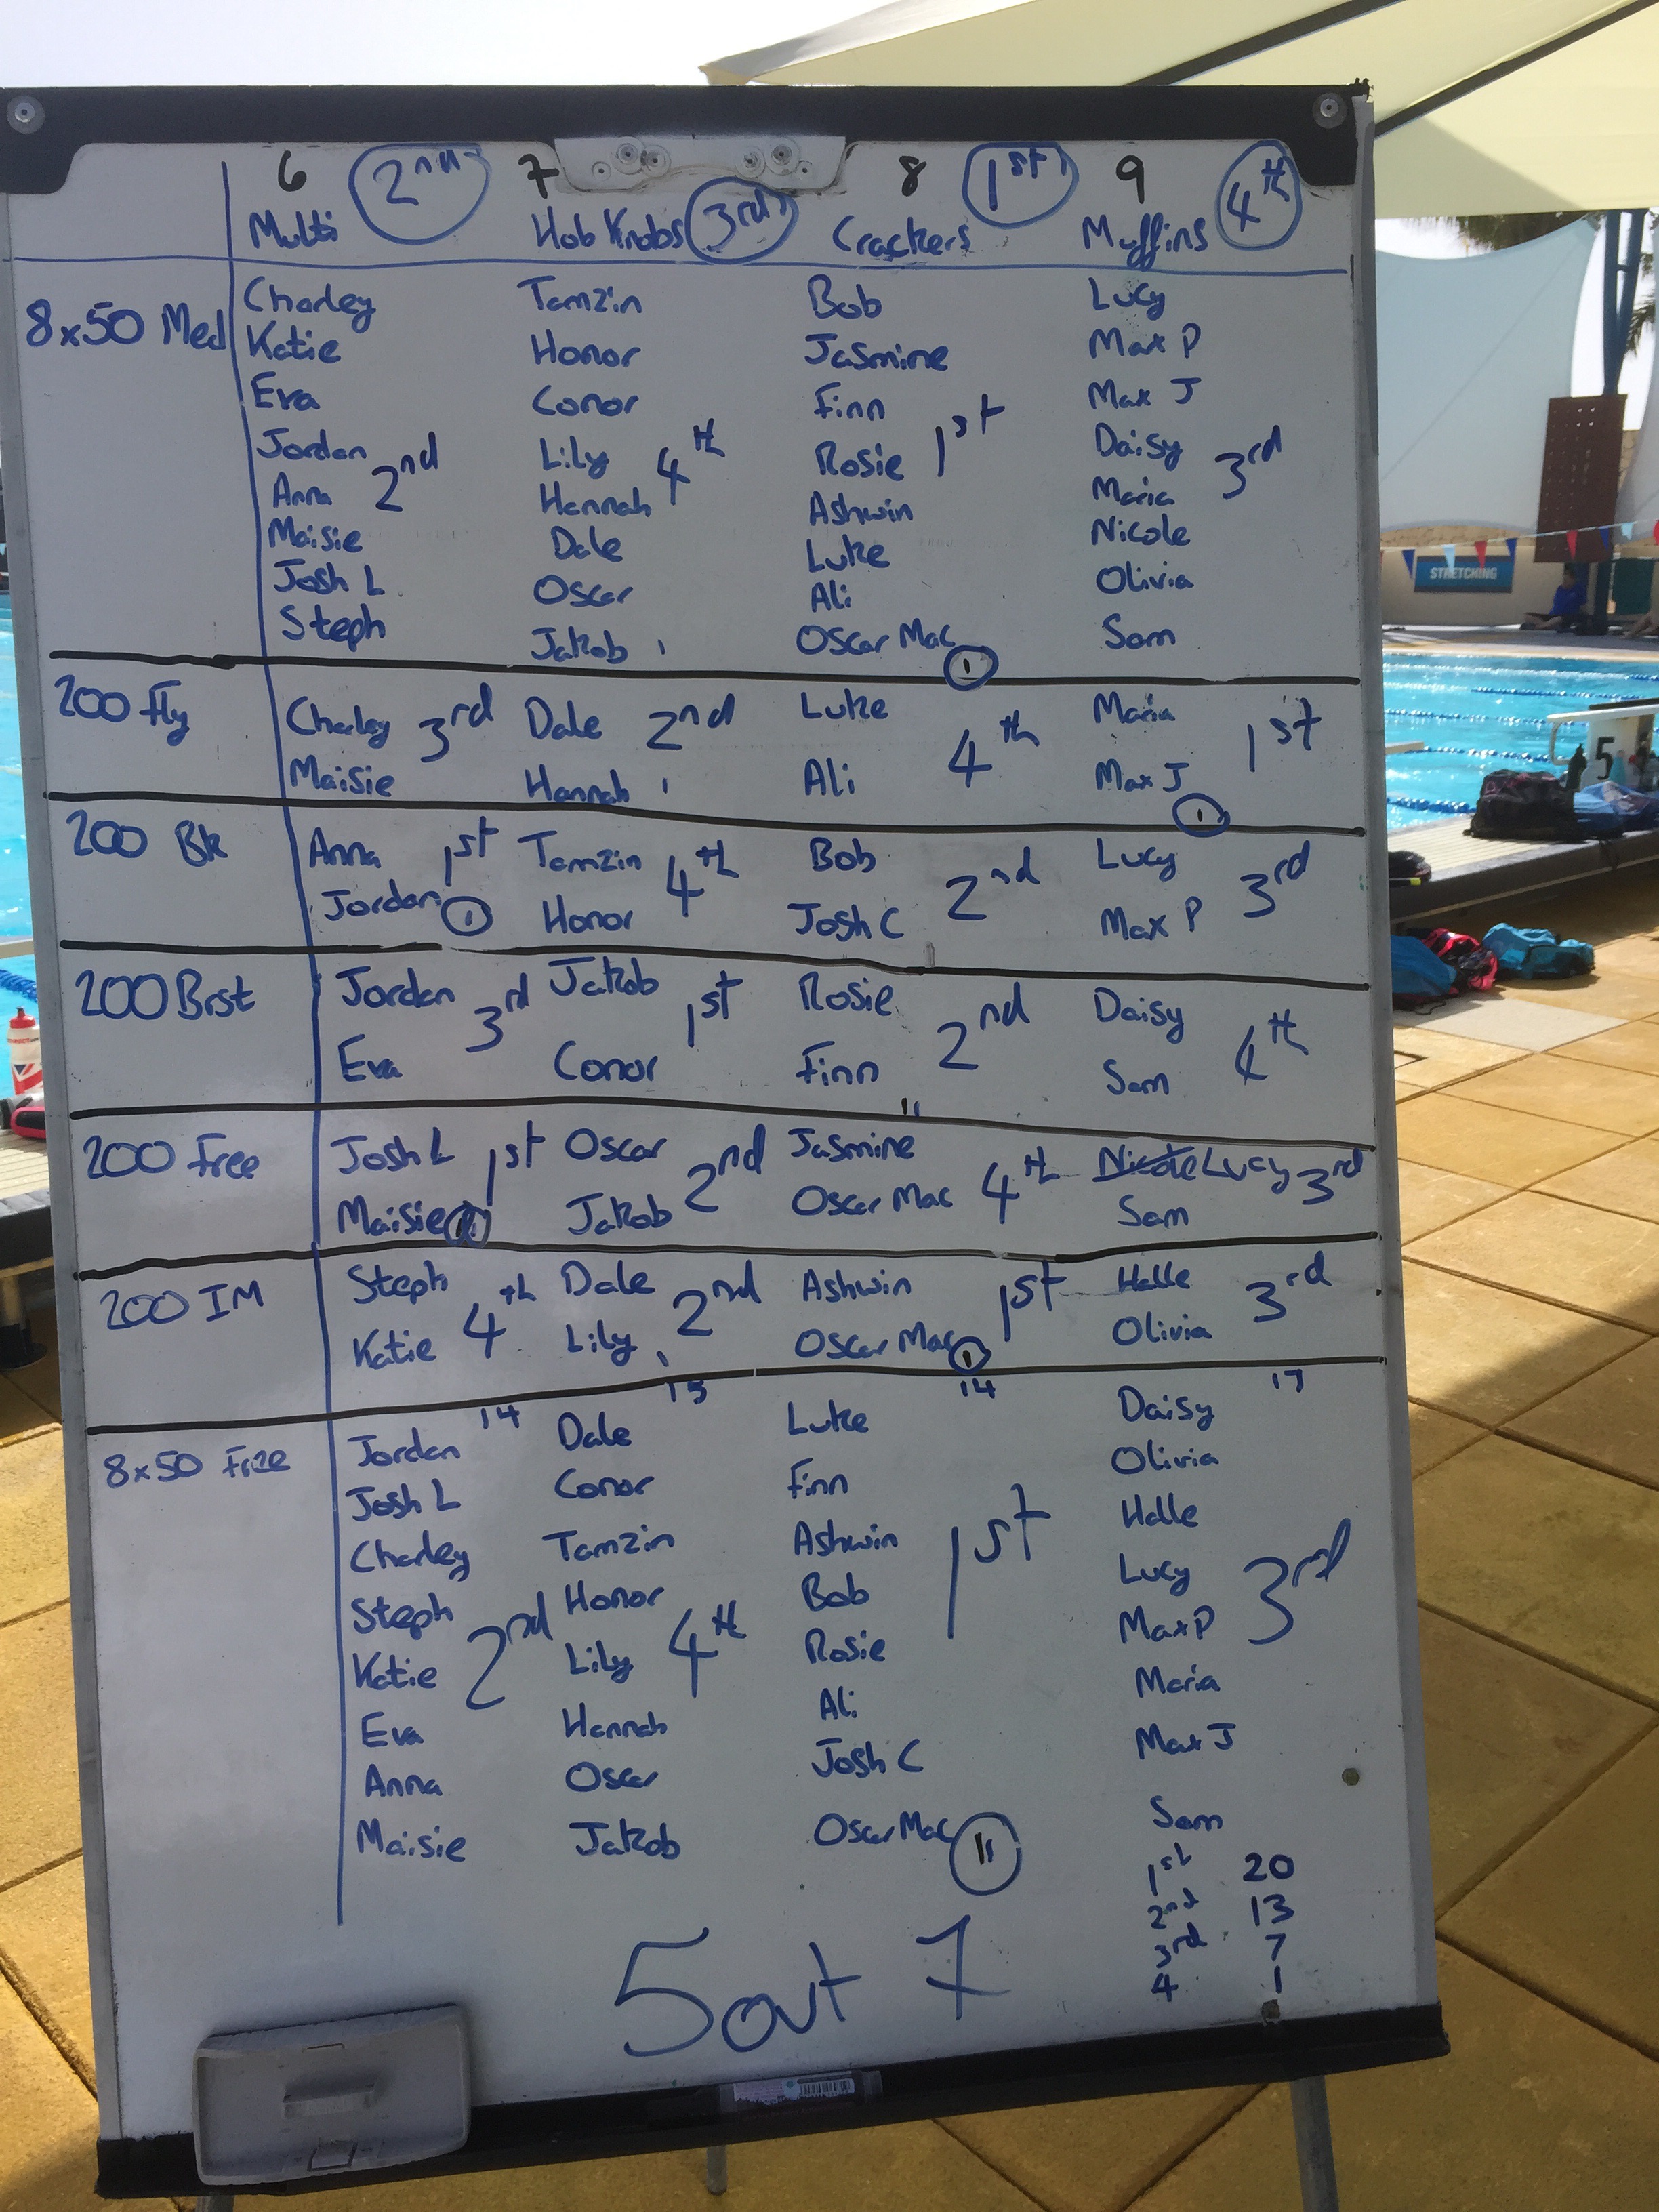 6 2nd 7 8 1st 9 4th
Multi Hob Knobs 3rd Crackers Muffins
8x50 Med Charley Tamzin Bob Lucy
Katie Honor Jasmine Max P
Eva Conor Finn Max J
Jordan 2nd Lily 4th Rosie 1st Daisy 3rd
Anna Hannah Ashwin Maria
Maisie Dale Luke Nicole
Josh L Oscar Ali Olivia
Steph Jakob Oscar Mac Sam
200 Fly Charley 3rd Dale 2nd Luke 4th Maria 1st
Maisie Hannah Ali Max J
200 Bk Anna 1st Tamzin 4th Bob 2nd Lucy 3rd
Jordan Honor Josh C Max P
200 Brst Jordan 3rd Jakob 1st Rosie 2nd Daisy 4th
Eva Conor Finn Sam
200 Free Josh L 1st Oscar 2nd Jasmine 4th Nicole Lucy 3rd
Maisie Jakob Oscar Mac Sam
200 IM Steph 4th Dale 2nd Ashwin 1st Halle 3rd
Katie Lily Oscar Mac Olivia
14 15 14 17
8x50 Free Jordan Dale Luke Daisy
Josh L Conor Finn Olivia
Charley Tamzin Ashwin 1st Halle
Steph 2nd Honor 4th Bob Lucy 3rd
Katie Lily Rosie Max P
Eva Hannah Ali Maria
Anna Oscar Josh C Max J
Maisie Jakob Oscar Mac Sam
1st 20
2nd 13
3rd 7
4 1
5 out 7
STRETCHING
5